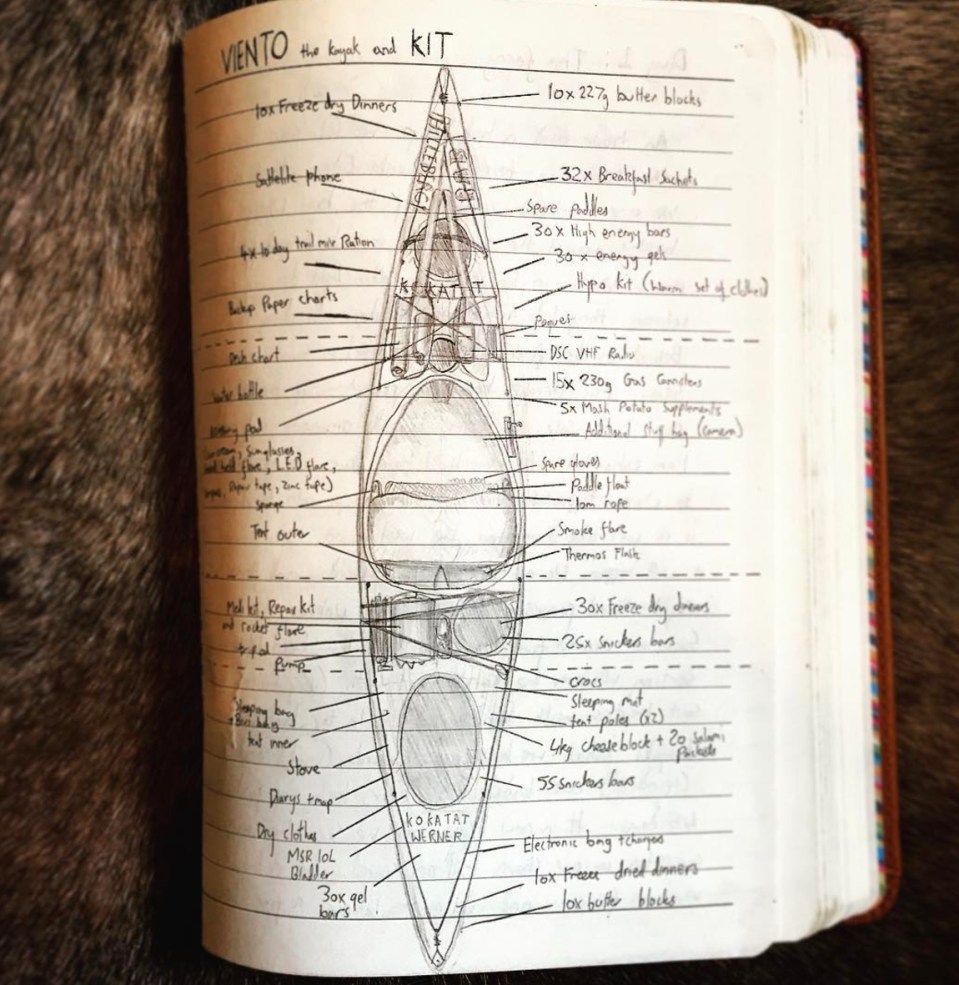 VIENTO the kayak and KIT
10x Freeze dry Dinners
10x 227g butter blocks
Sattelite phone
32x Breakfast Sachets
Spare paddles
30x High energy bars
4x 10 day trail mix Ration
30x energy gels
Hypo kit (warm set of clothes)
KOKATAT
Backup Paper charts
Deck chart
DSC VHF Radio
Water bottle
15x 230g Gas Cannisters
5x Mash Potato Supplements
Additional Stuff bag (camera)
Sunglasses,
hand held flare, L.E.D flare,
Repair tape, Zinc tape)
Sponge
Spare gloves
Paddle float
10m rope
Tent outer
Smoke flare
Thermos Flask
Medi kit, Repair kit
and rocket flare
tripod
Pump
30x Freeze dry dinners
25x snickers bars
crocs
Sleeping bag
+ Bivi bag
tent inner
Stove
Diarys + map
Dry clothes
MSR 10L
Bladder
30x gel
bars
Sleeping mat
tent poles (x2)
4kg cheese block + 20 Salami
Packets
55 snickers bars
KOKATAT
WERNER
Electronic bag + chargers
10x Freeze dried dinners
10x butter blocks